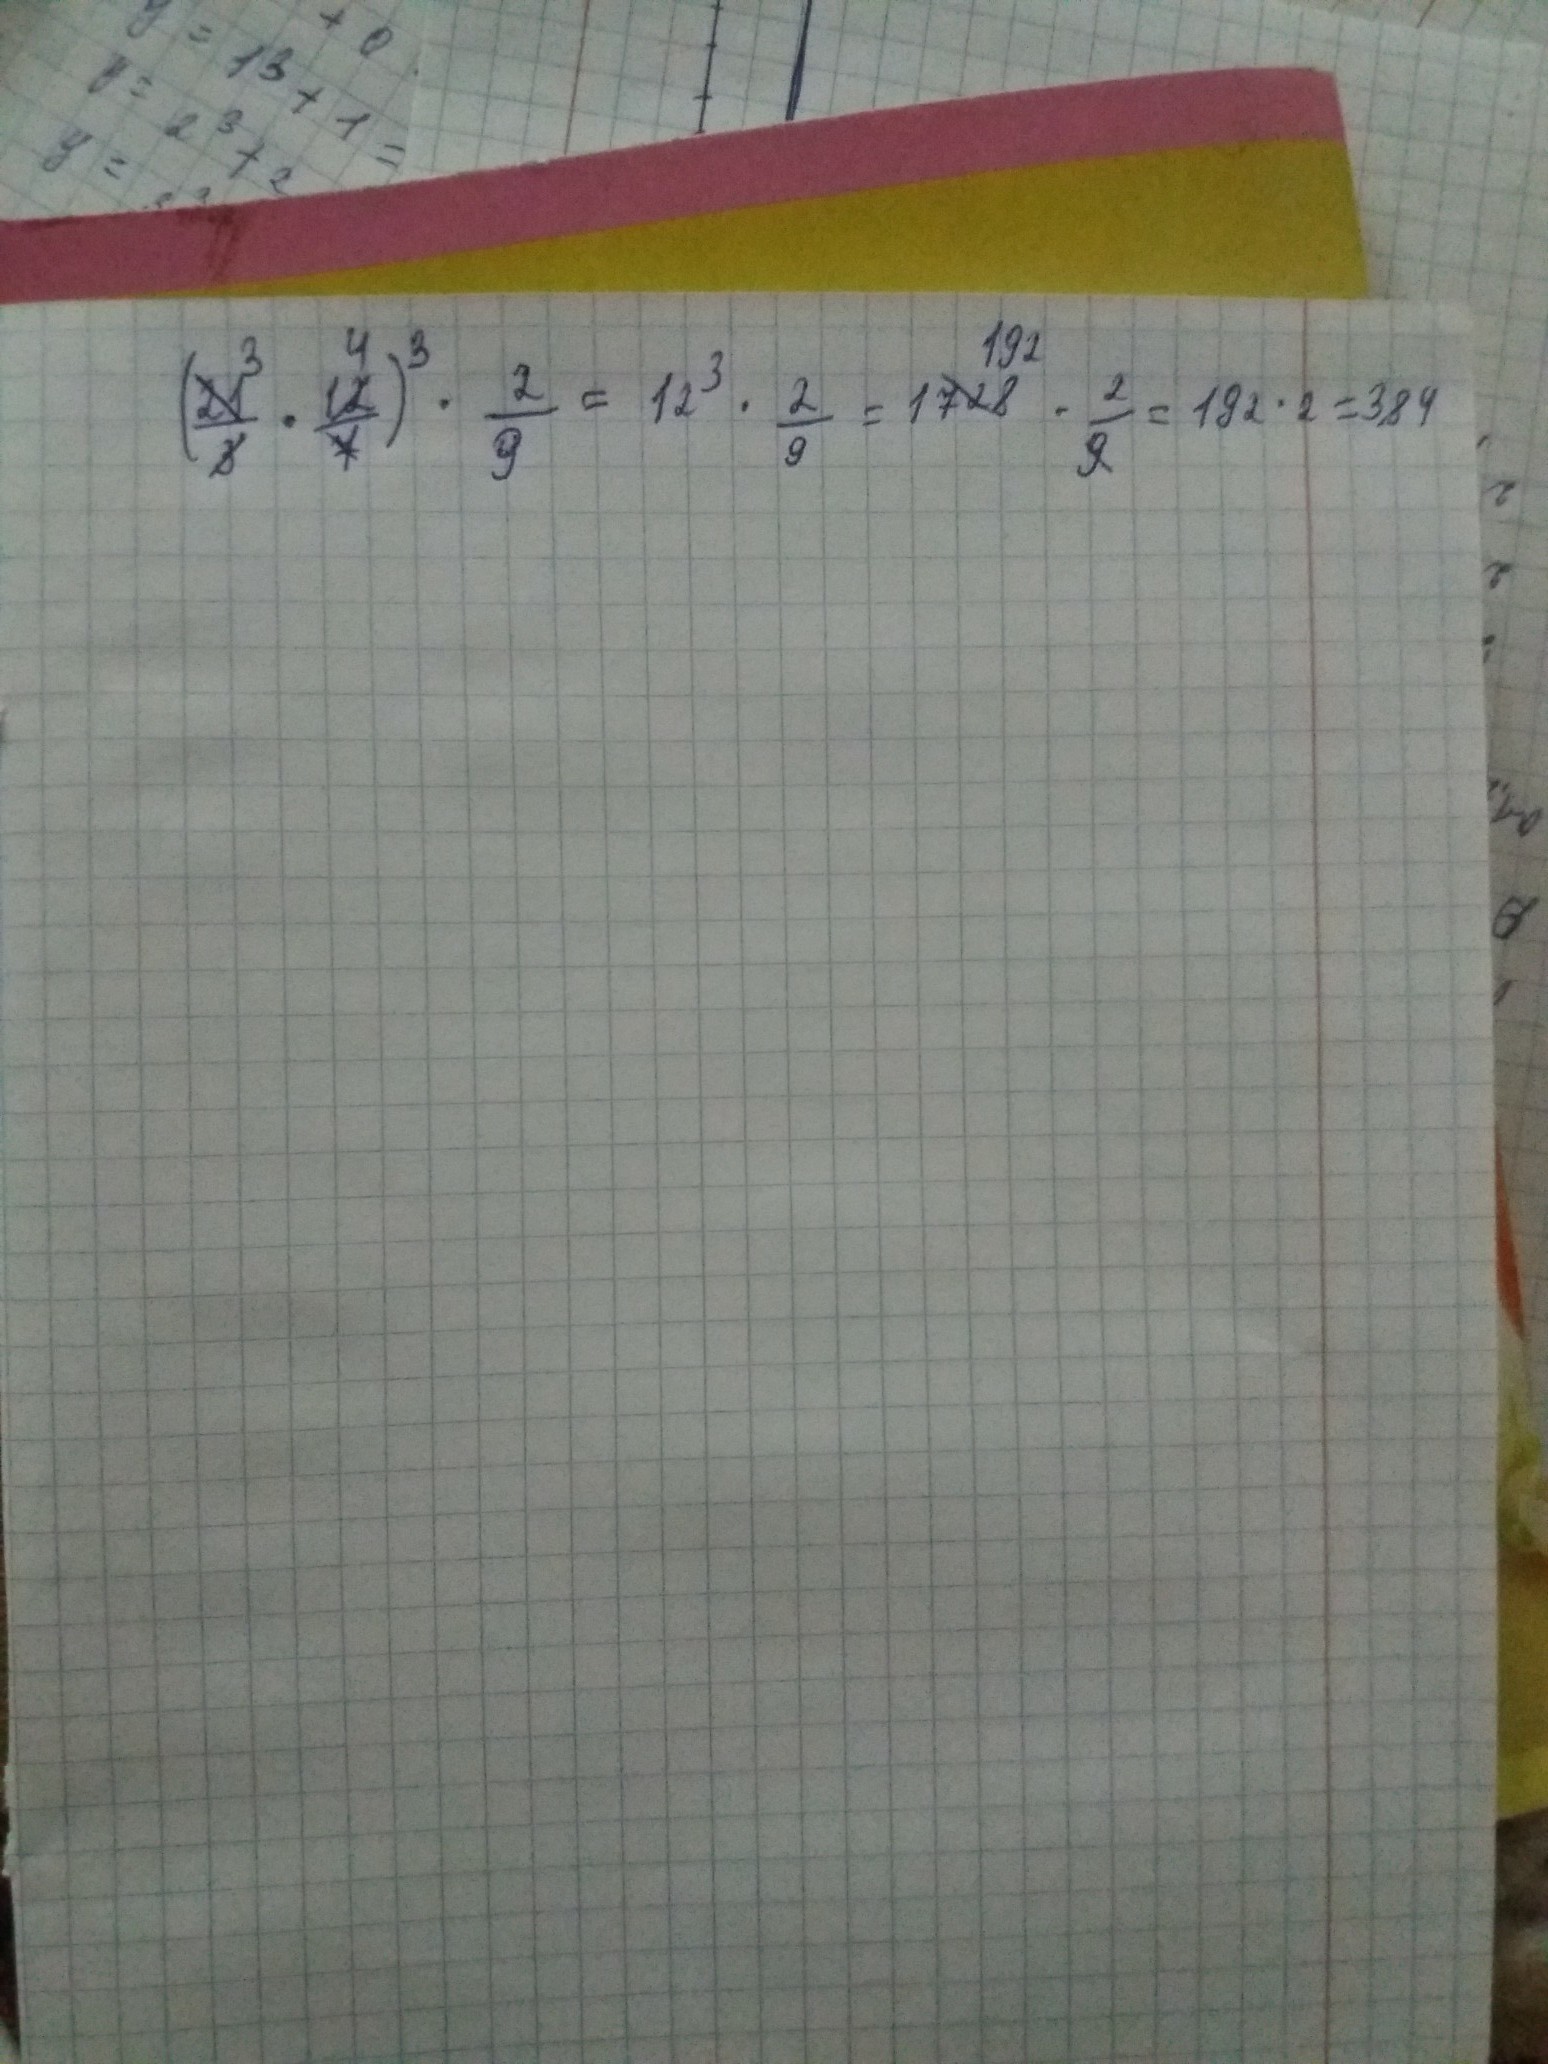 y = + 0
y = 13 + 1 =
y = 2³ + 2
(21/3 · 12/7)³ · 2/9 = 12³ · 2/9 = 1728 · 2/9 = 192 · 2 = 384
3 4 192